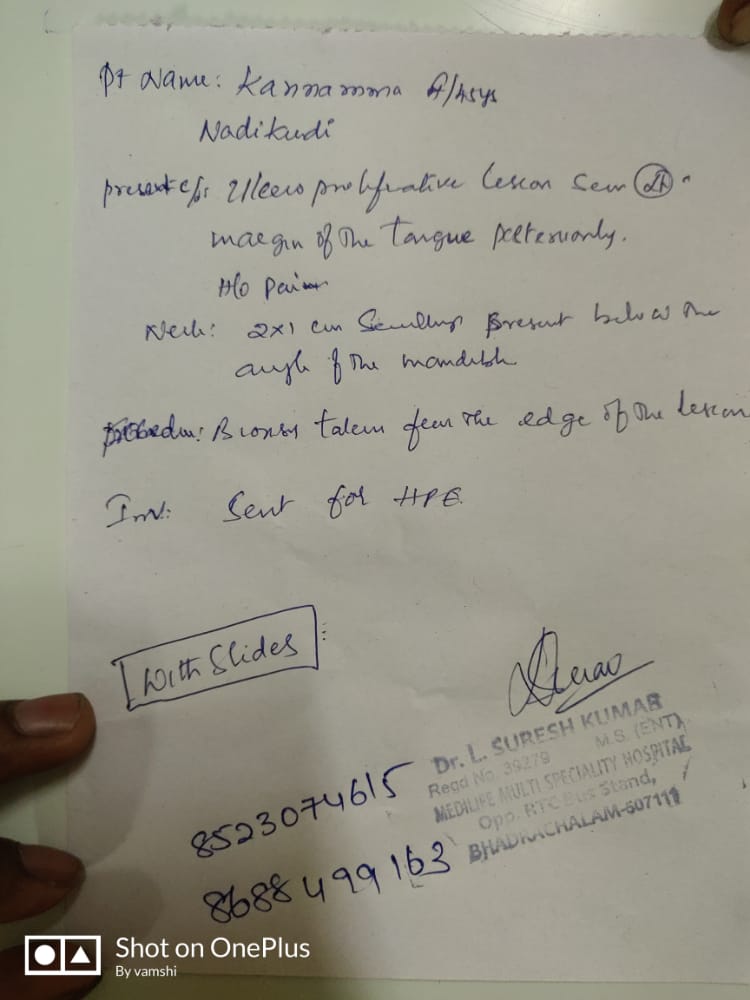 Pt Name: Kannamma F/45ys
Nadikudi
present c/o: Ulcero proliferative lesion seen
margin of the tongue posteriorly.
H/o Pain
Neck: 2x1 cm Swelling present below the
angle of the mandible
procedure: Biopsy taken from the edge of the lesion
Inv: Sent for HPE.
With Slides
Dr. L. SURESH KUMAR
M.S. (ENT)
Regd No. 39279
MEDILIFE MULTI SPECIALITY HOSPITAL
Opp. RTC Bus Stand,
BHADRACHALAM-507111
8523074615
8688499163
Shot on OnePlus
By vamshi